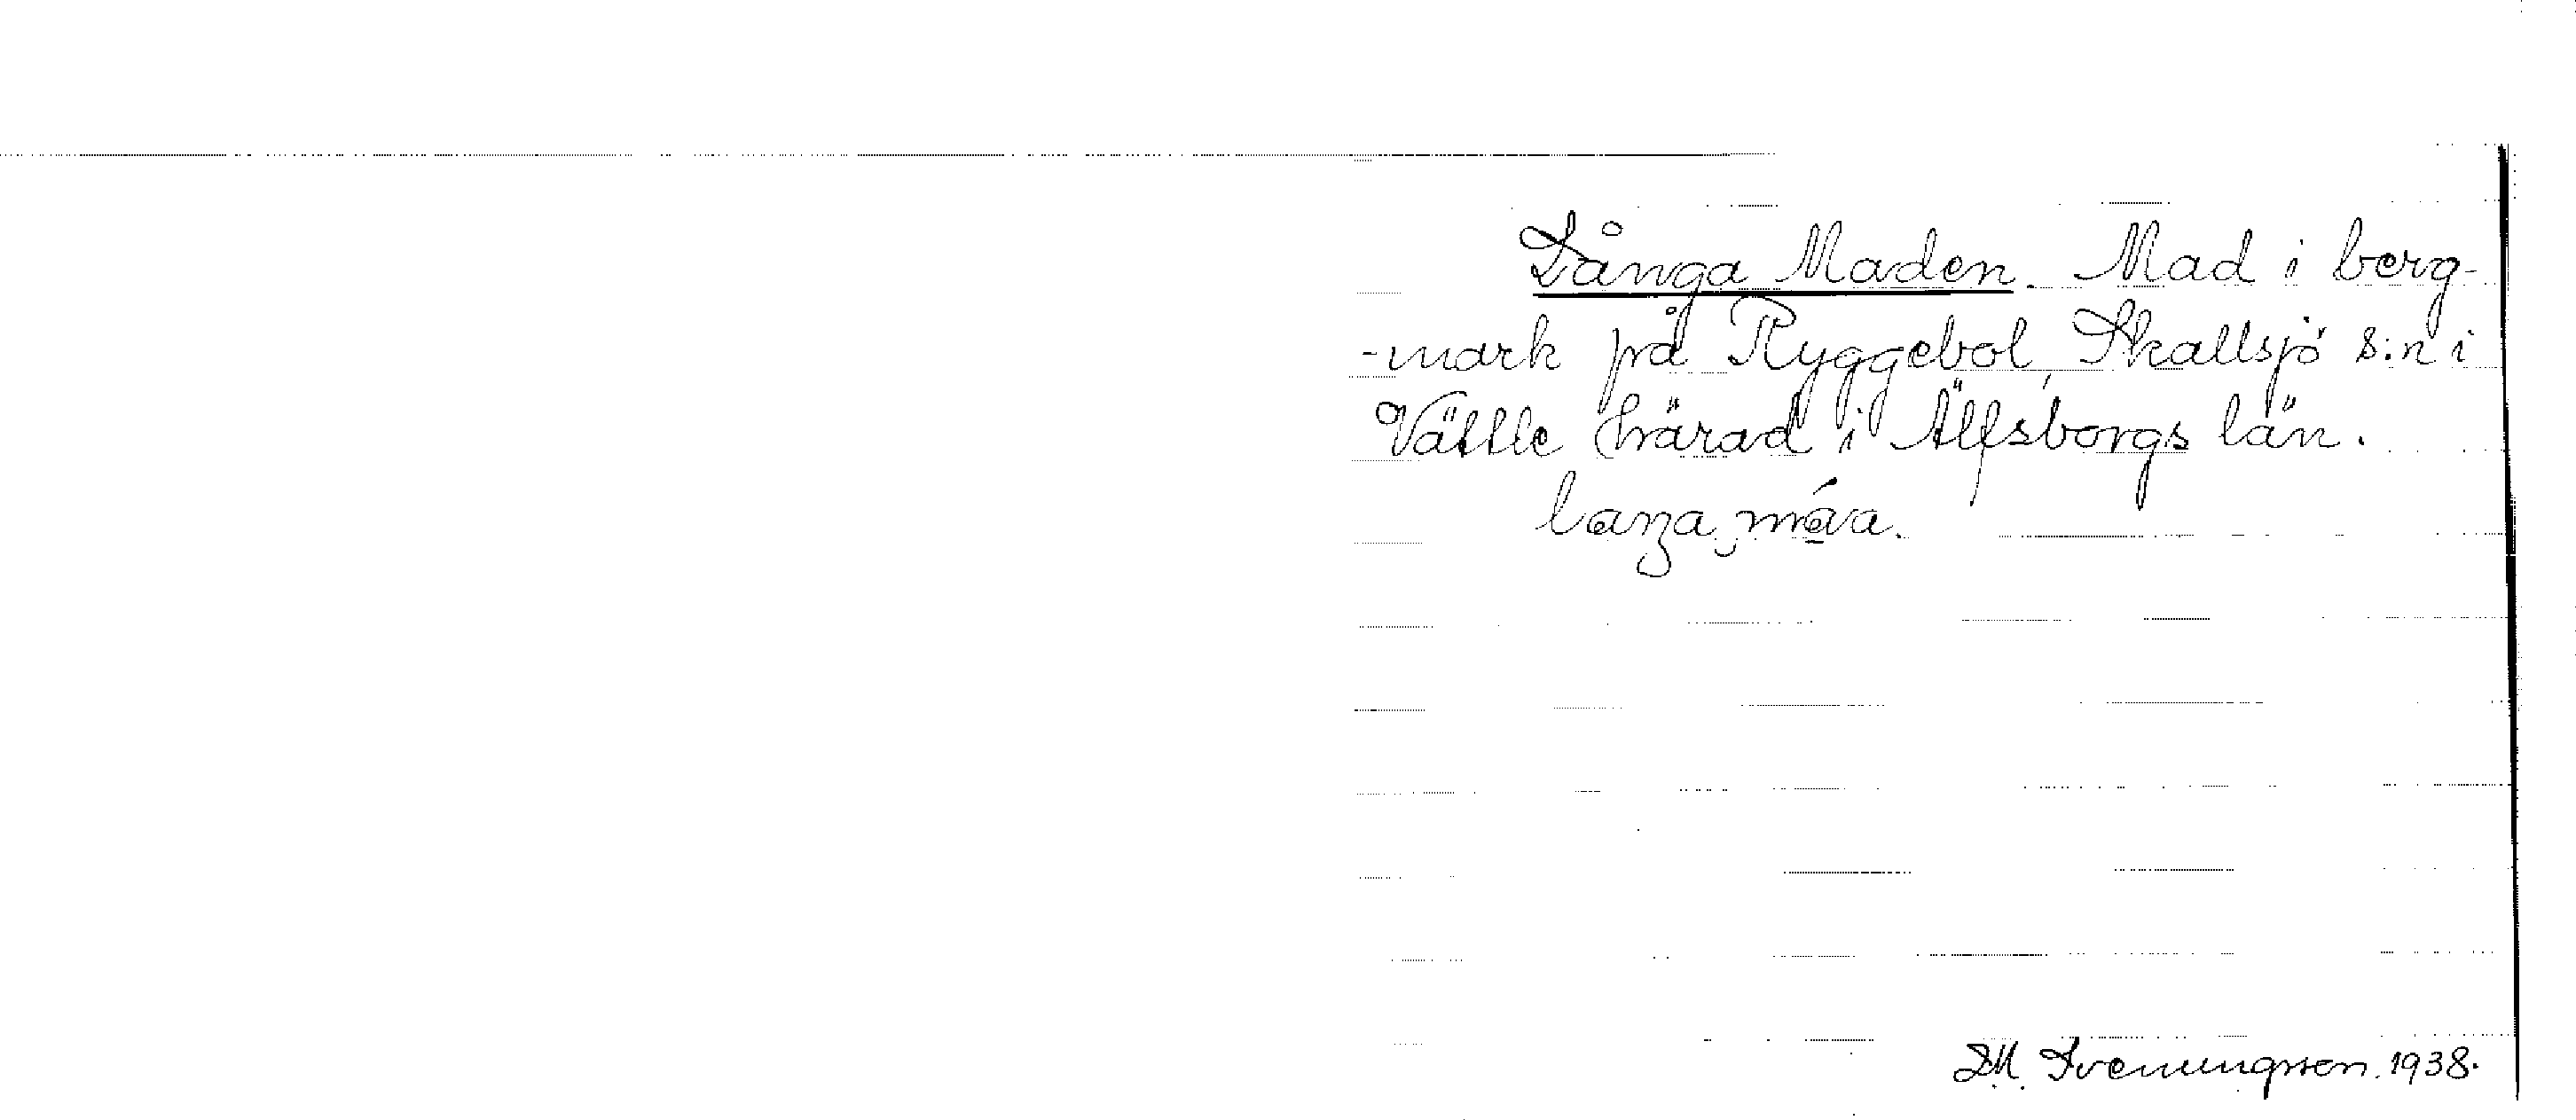 Långa Maden. Mad i berg-
-mark på Ryggebol, Skallsjö s:n i
Vättle härad i Älfsborgs län.
Svenungsson. 1938.